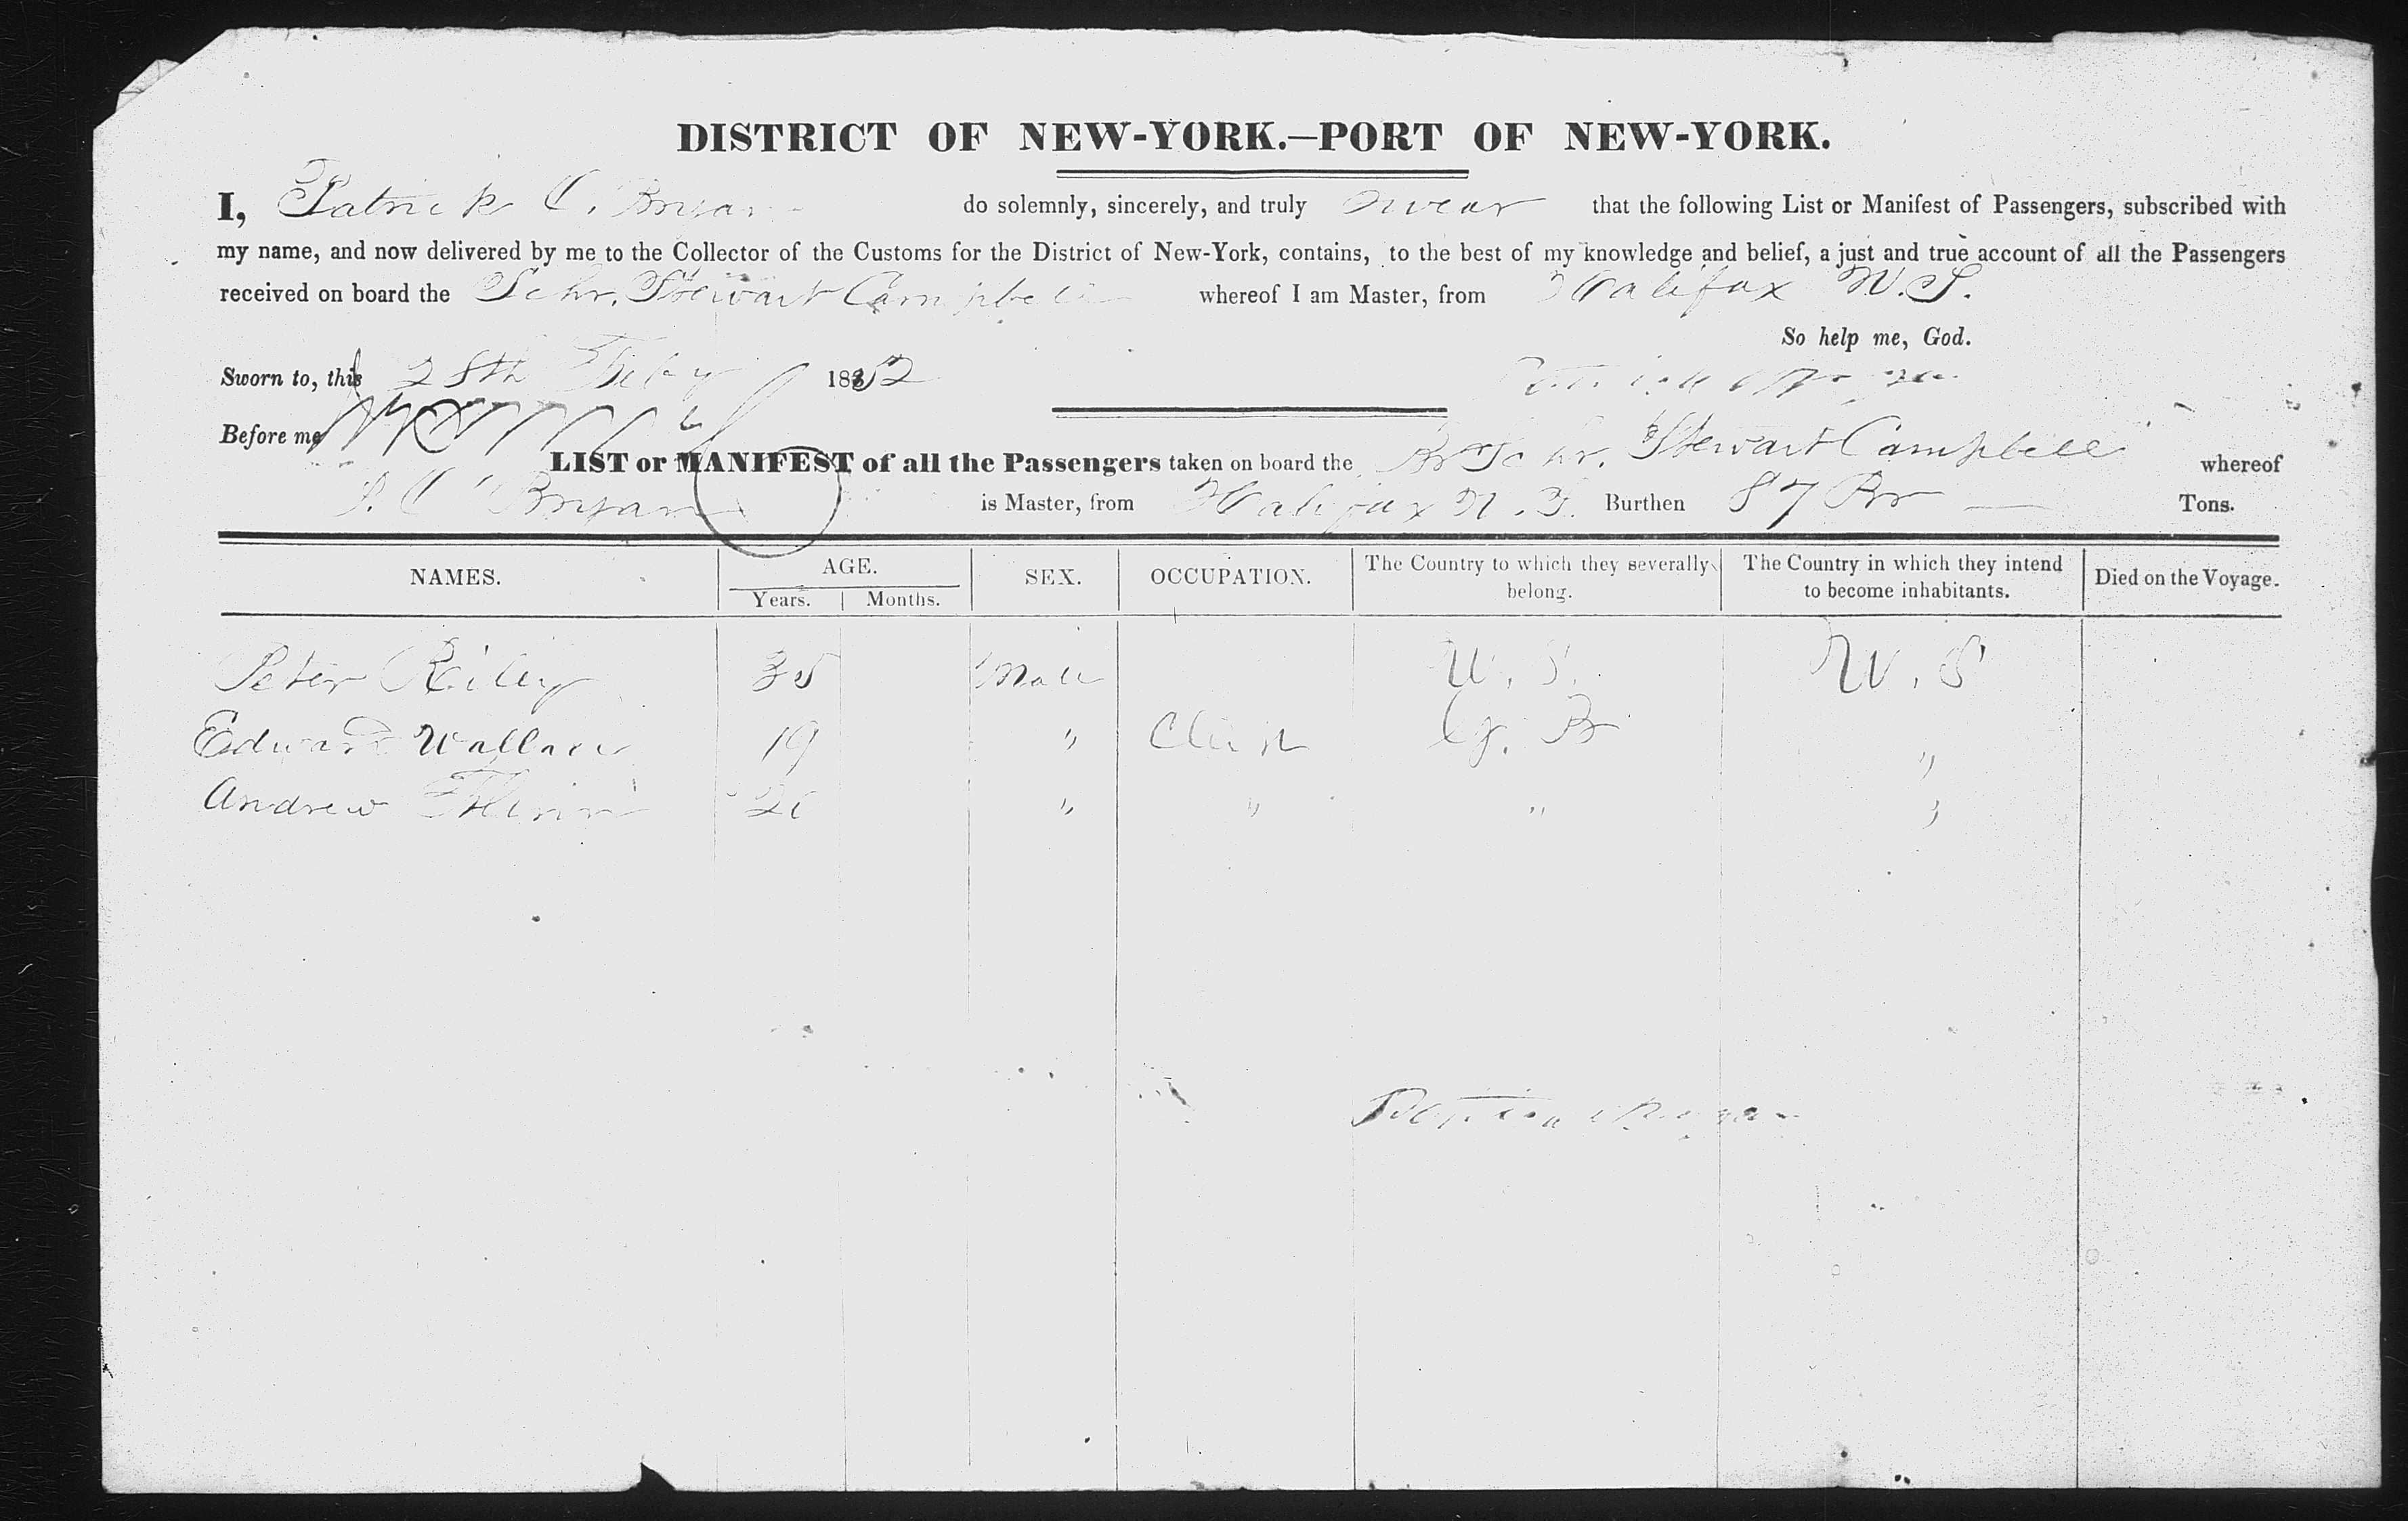 DISTRICT OF NEW-YORK.—PORT OF NEW-YORK.
I, Patrick O'Bryan do solemnly, sincerely, and truly swear that the following List or Manifest of Passengers, subscribed with
my name, and now delivered by me to the Collector of the Customs for the District of New-York, contains, to the best of my knowledge and belief, a just and true account of all the Passengers
received on board the Schr. Stewart Campbell whereof I am Master, from Halifax N.S.
So help me, God.
Sworn to, this 28th Feby 1852
Before me
LIST or MANIFEST of all the Passengers taken on board the Br Schr. Stewart Campbell whereof
P. O'Bryan is Master, from Halifax N.S. Burthen 87 Tons.
NAMES. AGE. SEX. OCCUPATION. The Country to which they severally belong. The Country in which they intend to become inhabitants. Died on the Voyage.
Years. Months.
Peter Riley 35 Male U.S. U.S
Edward Wallace 19 " Clerk G. Br "
Andrew " " " "